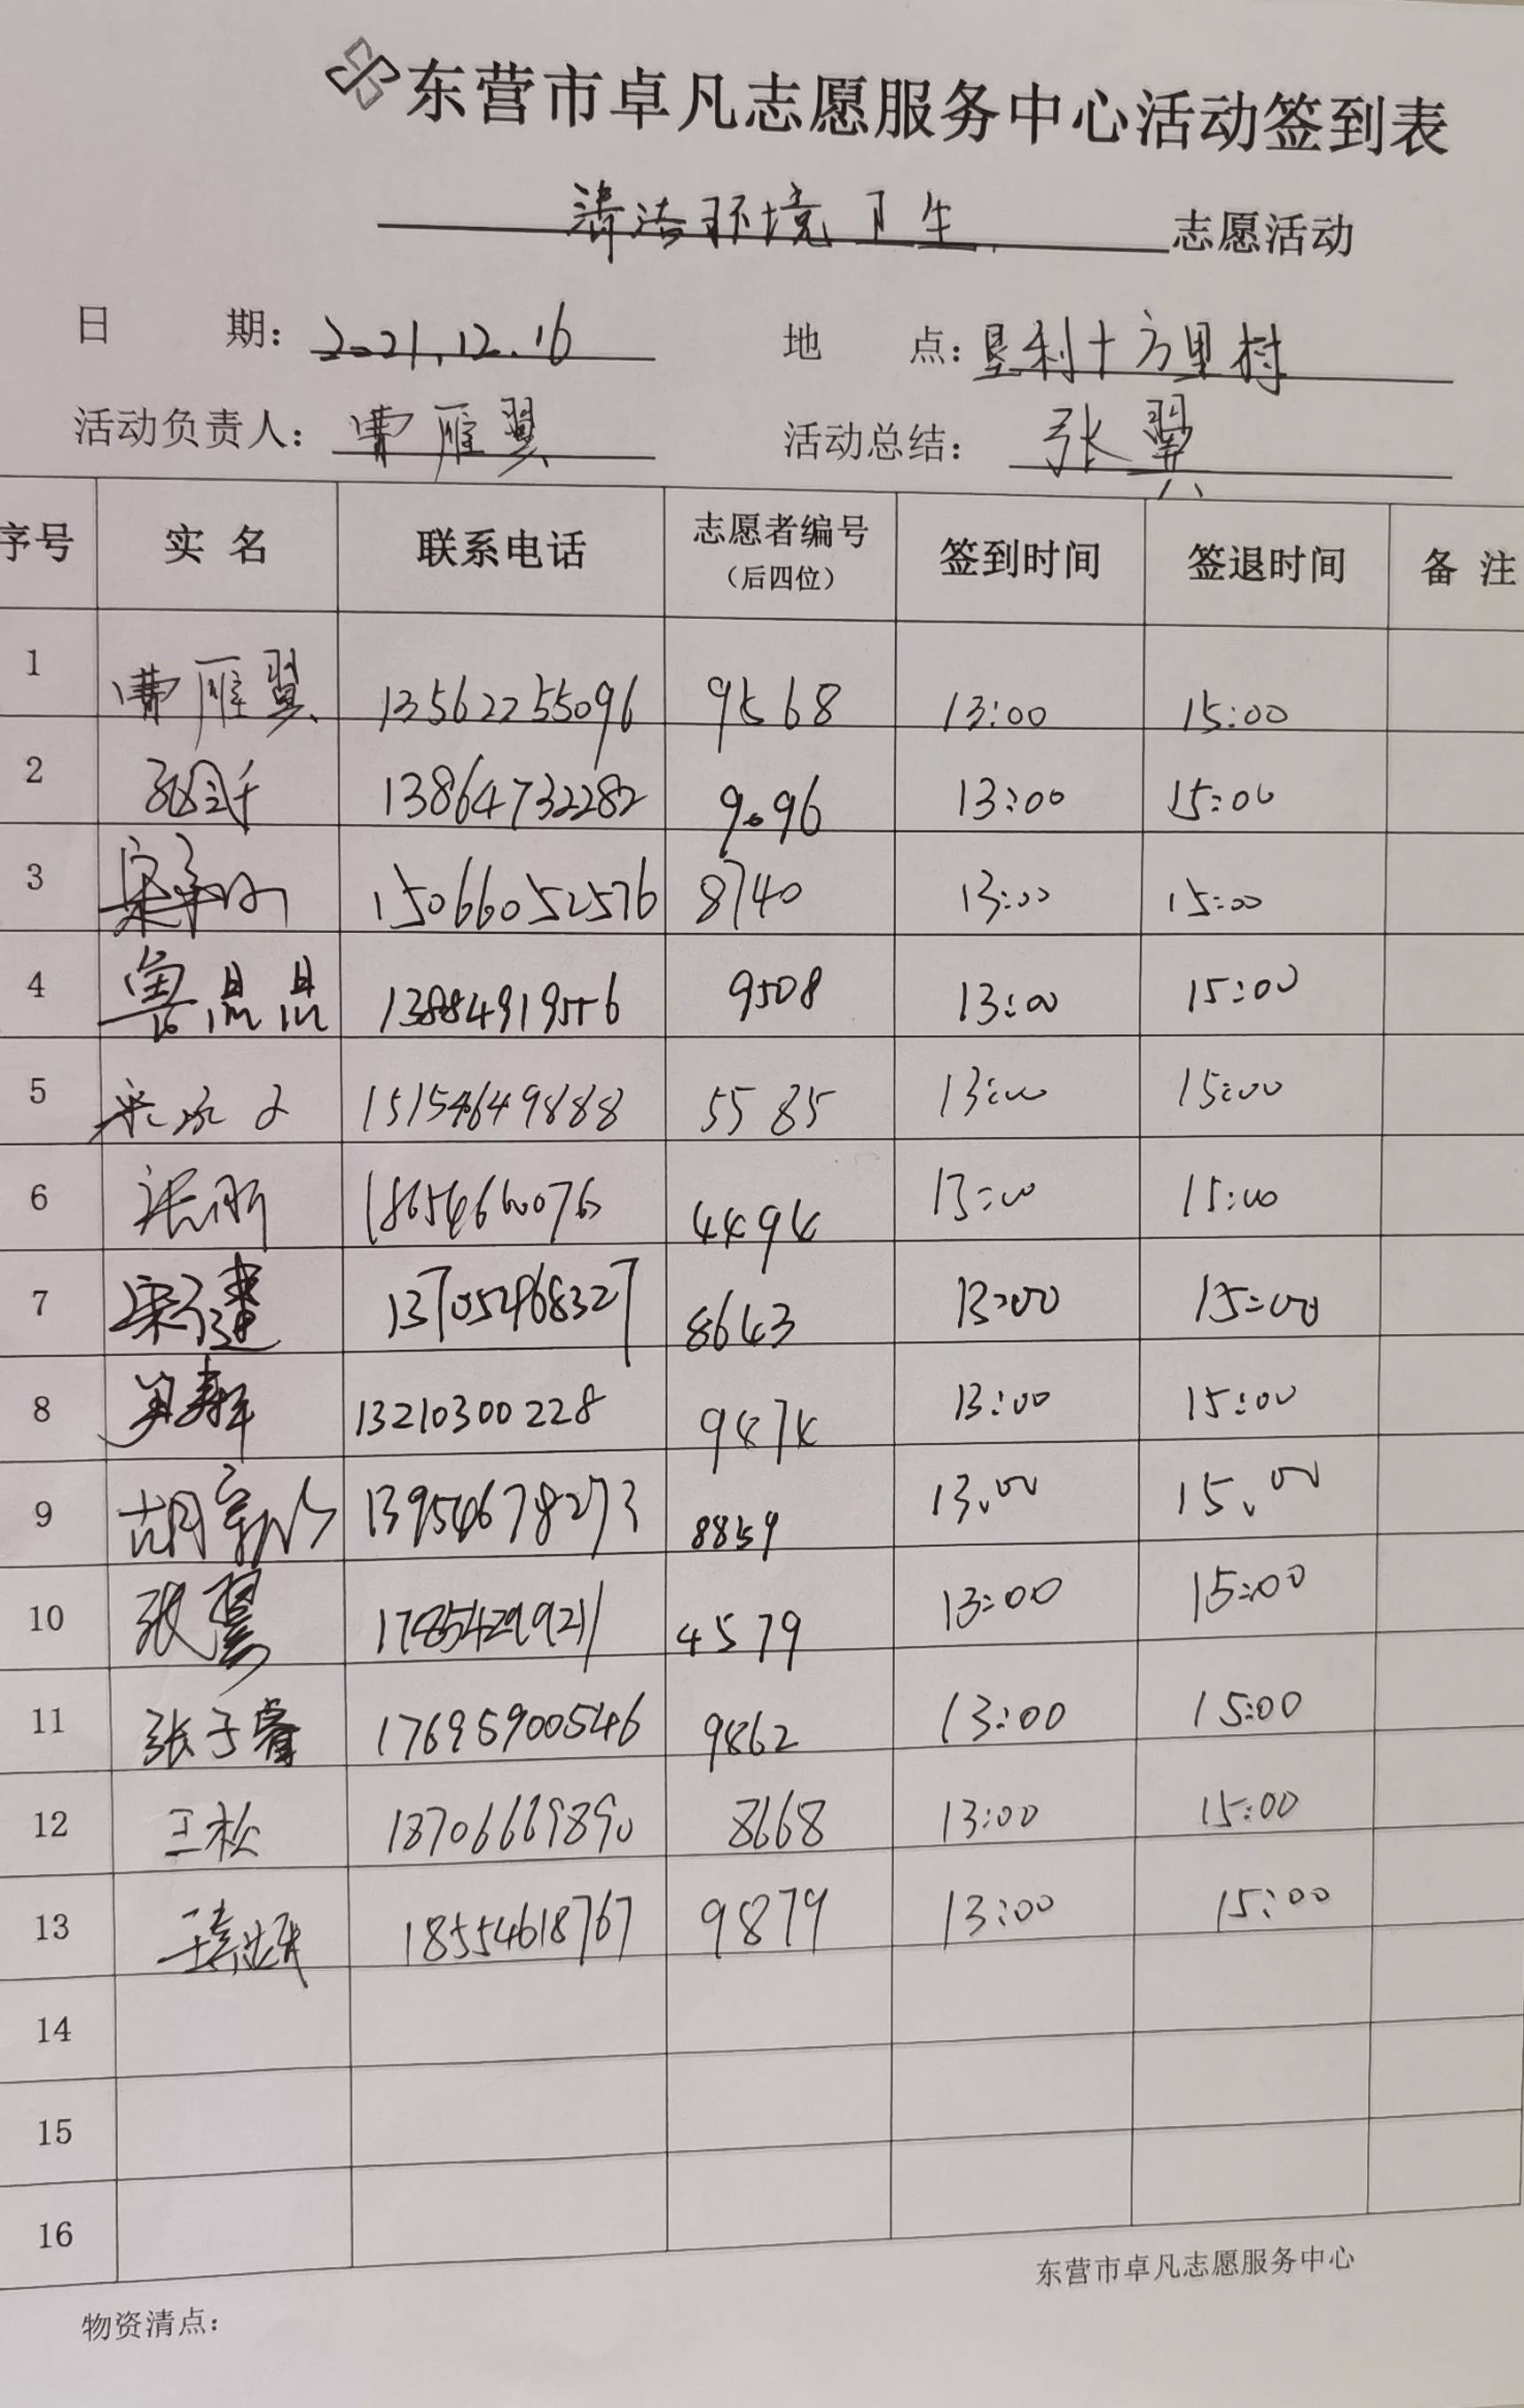 东营市卓凡志愿服务中心活动签到表
清洁环境卫生 志愿活动
日 期：2021.12.16 地 点：垦利十方里村
活动负责人：曹雁翼 活动总结：张翼
序号 实名 联系电话 志愿者编号（后四位） 签到时间 签退时间 备注
1 曹雁翼 13562255096 9568 13:00 15:00
2 13864732282 9096 13:00 15:00
3 15066052576 8740 13:00 15:00
4 鲁晶晶 13884919556 9508 13:00 15:00
5 15154649888 5585 13:00 15:00
6 18654660076 4494 13:00 15:00
7 宋建 13705468327 8643 13:00 15:00
8 13210300228 9474 13:00 15:00
9 13954678273 8859 13.00 15.00
10 张翼 17854299211 4579 13:00 15:00
11 张子睿 17695900546 9862 13:00 15:00
12 王松 18706669890 8668 13:00 15:00
13 18554618767 9879 13:00 15:00
14
15
16
东营市卓凡志愿服务中心
物资清点：